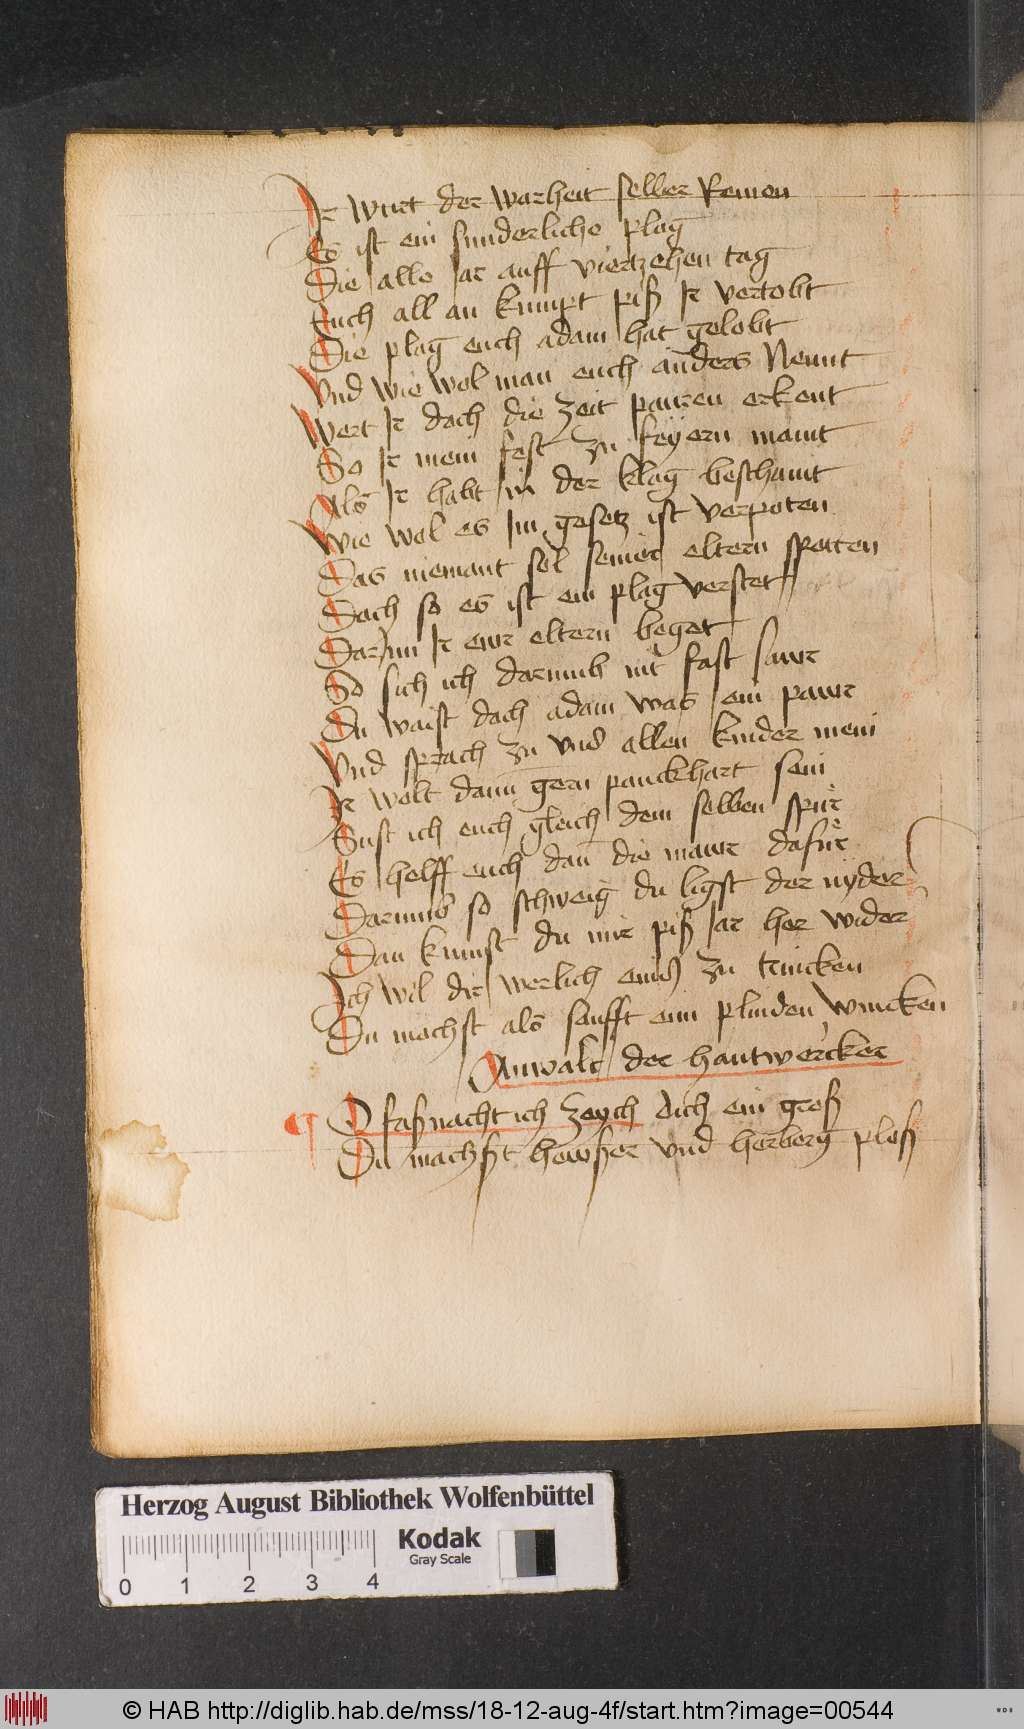 Ir wurt der warheit selber kemen
Es ist ein sunderliche plag
Die alle Jar auff viertzehen tag
Euch all an kumpt piß Ir vertobt
Die plag euch adam hat gelobt
Vnd wie wol man euch anders Nennt
Wert Ir doch die zeit pauren erkent
So Ir mein fest zu feyern maint
Als Ir habt in der klag beschaint
Wie wol es Im gesetz ist verpoten
Das niemant sol seiner eltern spotten
Doch so es ist ein plag verstet
Darinn Ir ewr eltern beget
So sich ich darumb nit fast sawr
Du waist doch adam was ein pawr
Vnd sprach zu vnd allen kinder mein
Ir wolt dann gern panckhart sein
Sust ich euch gleich dem selben spur
Es helff euch dan die mawr dafur
Darumb so schweig du ligst der nyder
Dan kumst du mir piß Jar her wider
Ich wil dir werlich einß zu trincken
Du mochst als sanfft eim plinden wincken
Anwalt der hantwercker
O faßnacht ich zeych dich ein groß
Du machst hewßer vnd herberg ploß
Herzog August Bibliothek Wolfenbüttel
Kodak
Gray Scale
0 1 2 3 4
© HAB http://diglib.hab.de/mss/18-12-aug-4f/start.htm?image=00544